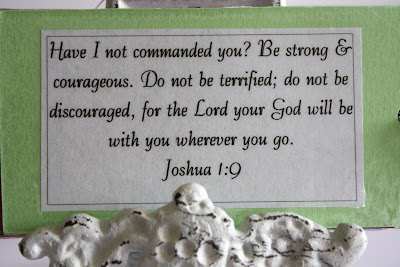 Have I not commanded you? Be strong &
courageous. Do not be terrified; do not be
discouraged, for the Lord your God will be
with you wherever you go.
Joshua 1:9